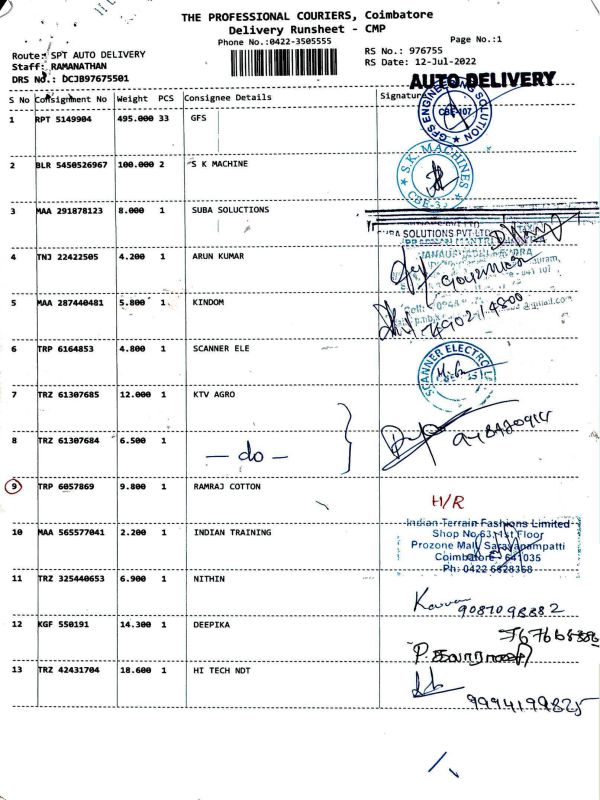 THE PROFESSIONAL COURIERS, Coimbatore
Delivery Runsheet - CMP
Phone No.:0422-3505555
Page No.:1
Route: SPT AUTO DELIVERY
RS No.: 976755
Staff: RAMANATHAN
RS Date: 12-Jul-2022
DRS No.: DCJB97675501
AUTO DELIVERY
S No Consignment No Weight PCS Consignee Details Signature
1 RPT 5149904 495.000 33 GFS
GFS ENGINEERING SOLUTION CBE-107
2 BLR 5450526967 100.000 2 S K MACHINE
S.K. MACHINES
3 MAA 291878123 8.000 1 SUBA SOLUCTIONS
SOLUTIONS PVT LTD
4 TNJ 22422505 4.200 1 ARUN KUMAR
5 MAA 287440481 5.800 1 KINDOM
6 TRP 6164853 4.800 1 SCANNER ELE
SCANNER ELECTRO
7 TRZ 61307685 12.000 1 KTV AGRO
8 TRZ 61307684 6.500 1
- do -
9 TRP 6057869 9.800 1 RAMRAJ COTTON
H/R
10 MAA 565577041 2.200 1 INDIAN TRAINING
Indian Terrain Fashions Limited
Shop No.63, 1st Floor
Prozone Mall, Saravanampatti
Coimbatore - 641035
Ph: 0422 6628368
11 TRZ 325440653 6.900 1 NITHIN
9087098882
12 KGF 550191 14.300 1 DEEPIKA
13 TRZ 42431704 18.600 1 HI TECH NDT
9994199825